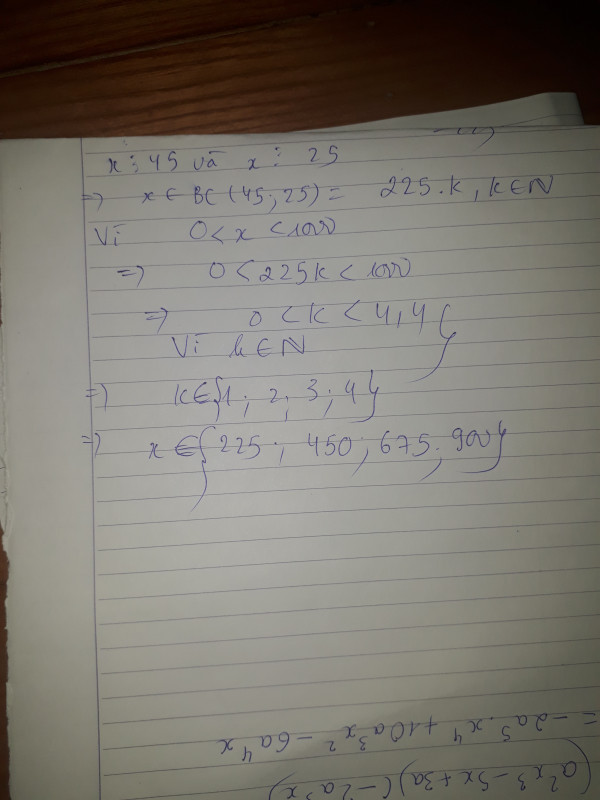 x ⋮ 45 và x ⋮ 25
=> x ∈ BC (45; 25) = 225.k, k ∈ N
Vì 0 < x < 1000
=> 0 < 225k < 1000
=> 0 < k < 4,4 }
Vì k ∈ N
=> k ∈ {1; 2; 3; 4}
=> x ∈ {225; 450; 675; 900}
(a²x³ - 5x + 3a)(-2a³x)
= -2a⁵.x⁴ + 10a³x² - 6a⁴x